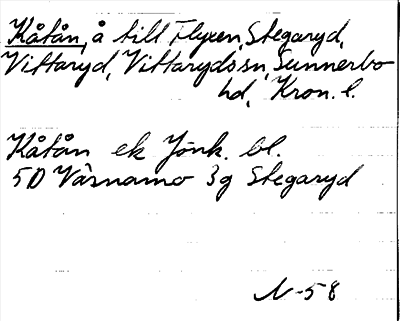 Kåtån, å till Flyxen, Stegaryd,
Vittaryd, Vittaryds sn, Sunnerbo
hd, Kron. l.
Kåtån ek Jönk. bl.
5D Värnamo 3g Stegaryd
N-58